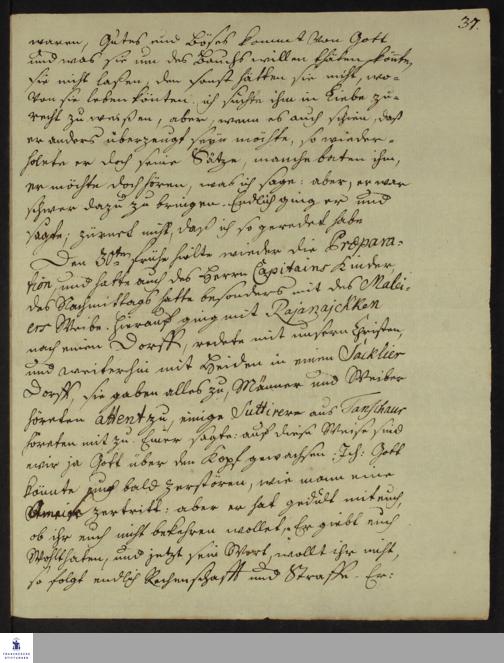 37.
waren, Gutes und Böses kommt von Gott
und was sie um des Bauchs willen thäten könte,
sie nicht laßen, den sonst hätten sie nicht, wo-
von sie leben könten. ich suchte ihn in Liebe zu-
recht zu weisen, aber, wenn es auch schien, daß
er anders überzeugt seyn möchte, so wieder-
holete er doch seine Sätze, manche baten ihn,
er möchte doch hören, was ich sage: aber, er war
schwer dazu zu bringen. Endlich ging er und
sagte; zürnet nicht, daß ich so geredet habe
Den 30ten frühe hielte wieder die Præpara-
tion, und hatte auch des Herrn Capitains Kinder
des Nachmittags hatte besonders mit des Malei-
ers Weibe. Hierauf ging mit Rajanajekken
nach einem Dorff, redete mit unsern Christen,
und weiterhin mit Heiden in einem Säcklier
Dorff, sie gaben alles zu, Männer und Weiber
höreten attent zu, einige Suttirer aus Tanschaur
höreten mit zu. Einer sagte: auf diese Weise sind
wir ja Gott über den Kopf gewachsen: Ich: Gott
könnte euch bald zerstören, wie man eine
Ameise zertritt: aber er hat gedult mit euch,
ob ihr euch nicht bekehren wollet. Er giebt euch
Wohlthaten, und jetzt sein Wort, wollt ihr nicht,
so folgt endlich Rechenschafft und Straffe. Er:
FRANCKESCHE
STIFTUNGEN